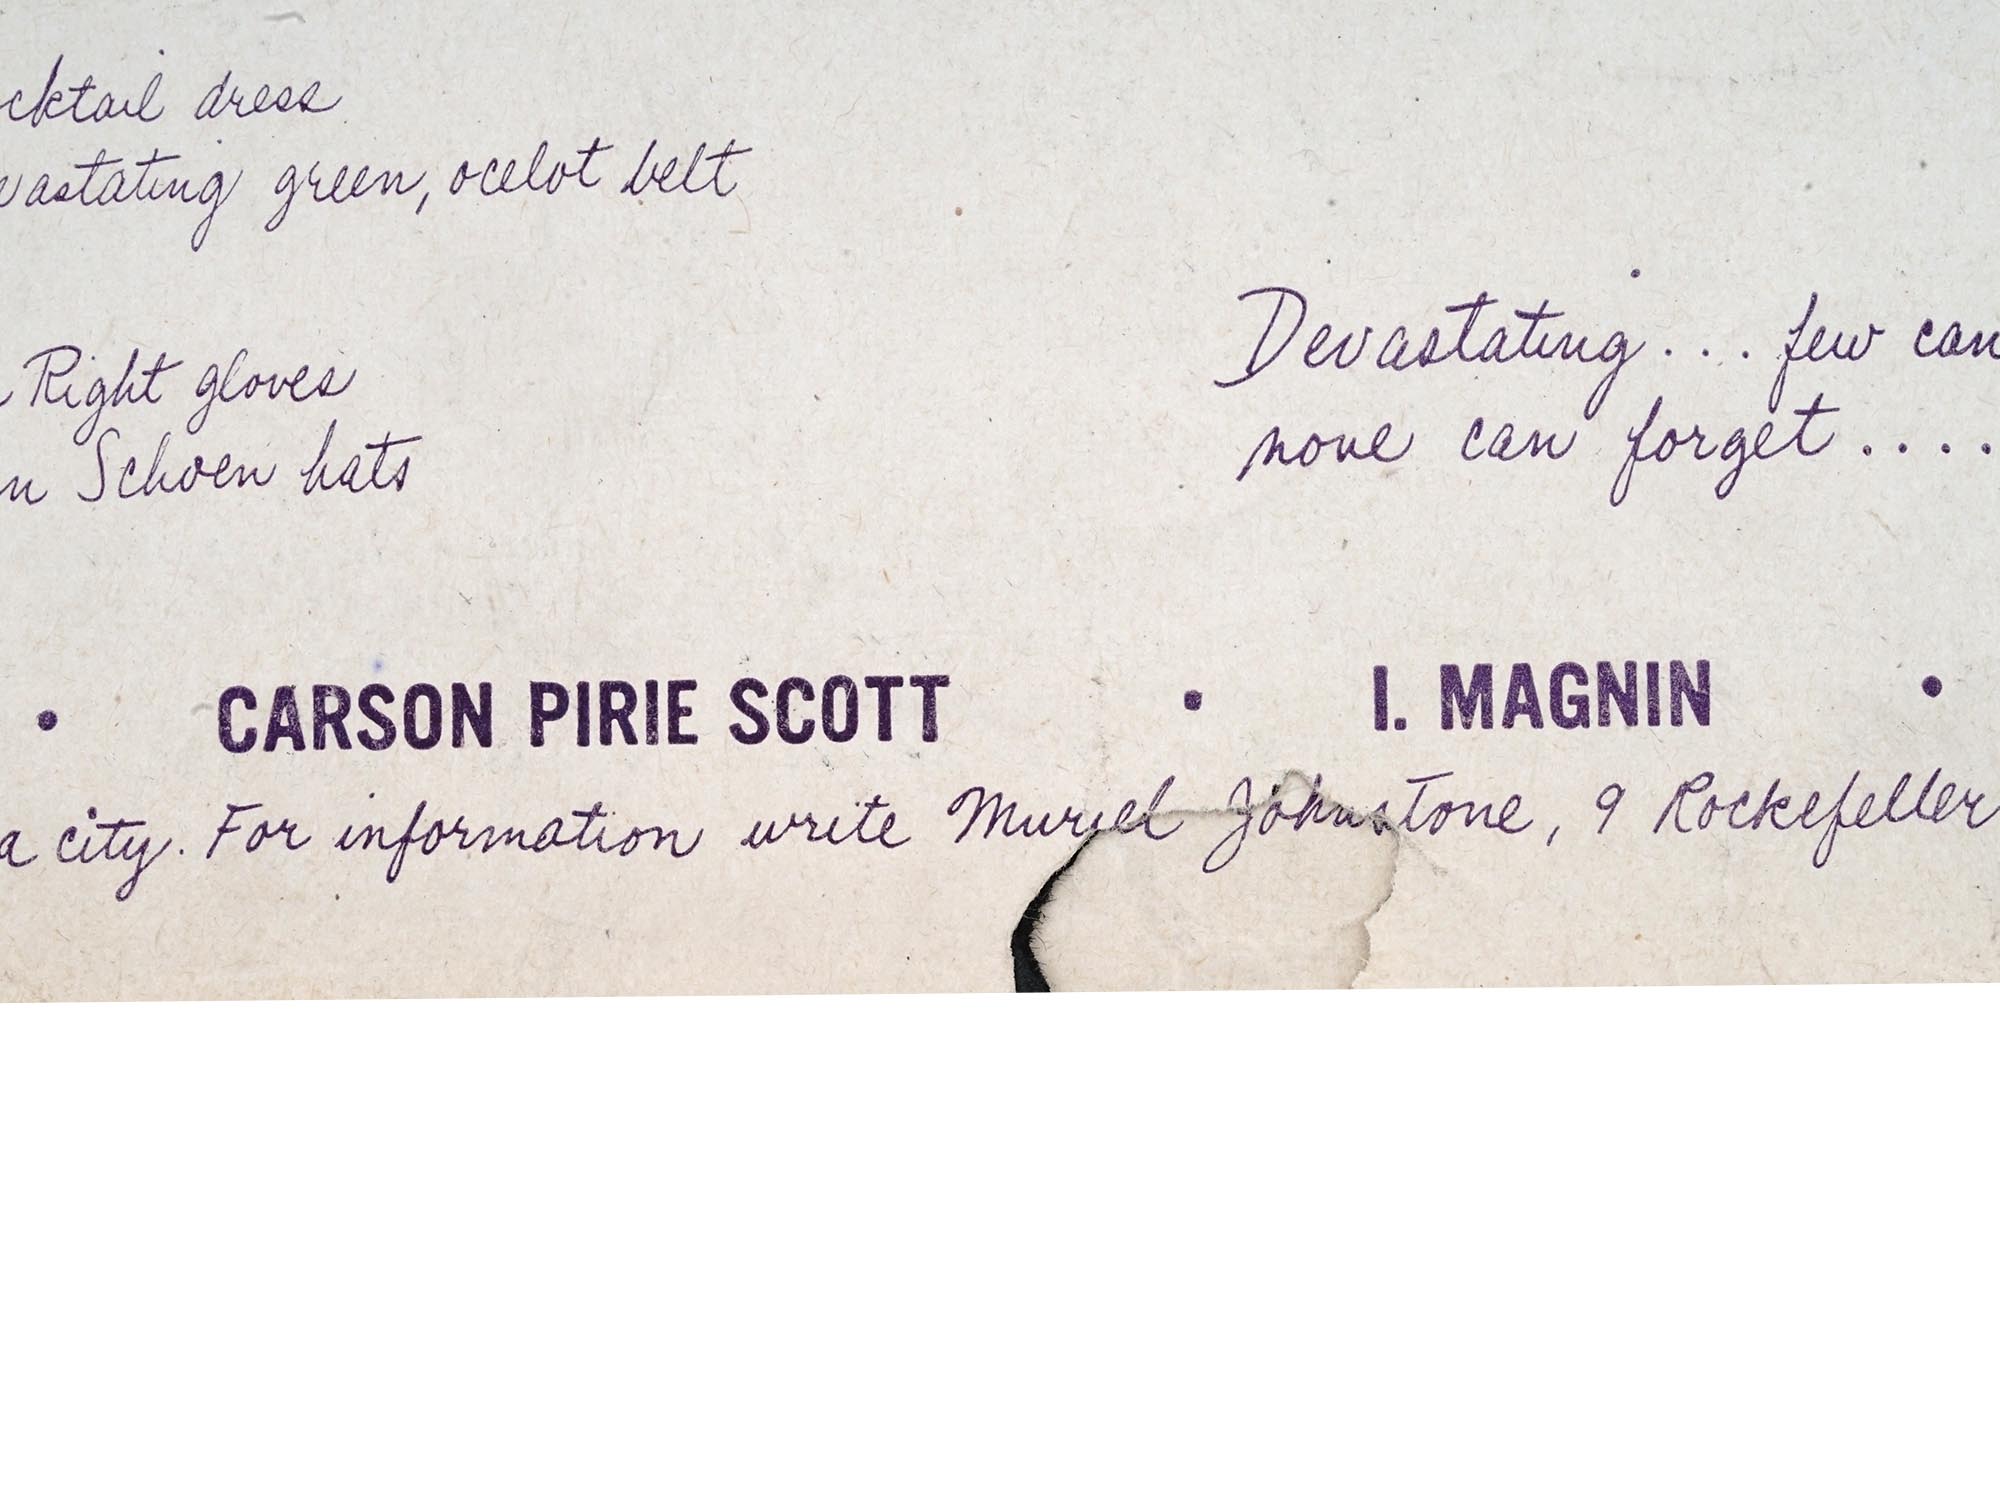 cktail dress
vastating green, ocelot belt
Right gloves
n Schoen hats
Devastating... few can
none can forget....
• CARSON PIRIE SCOTT • I. MAGNIN •
a city. For information write Muriel Johnstone, 9 Rockefeller